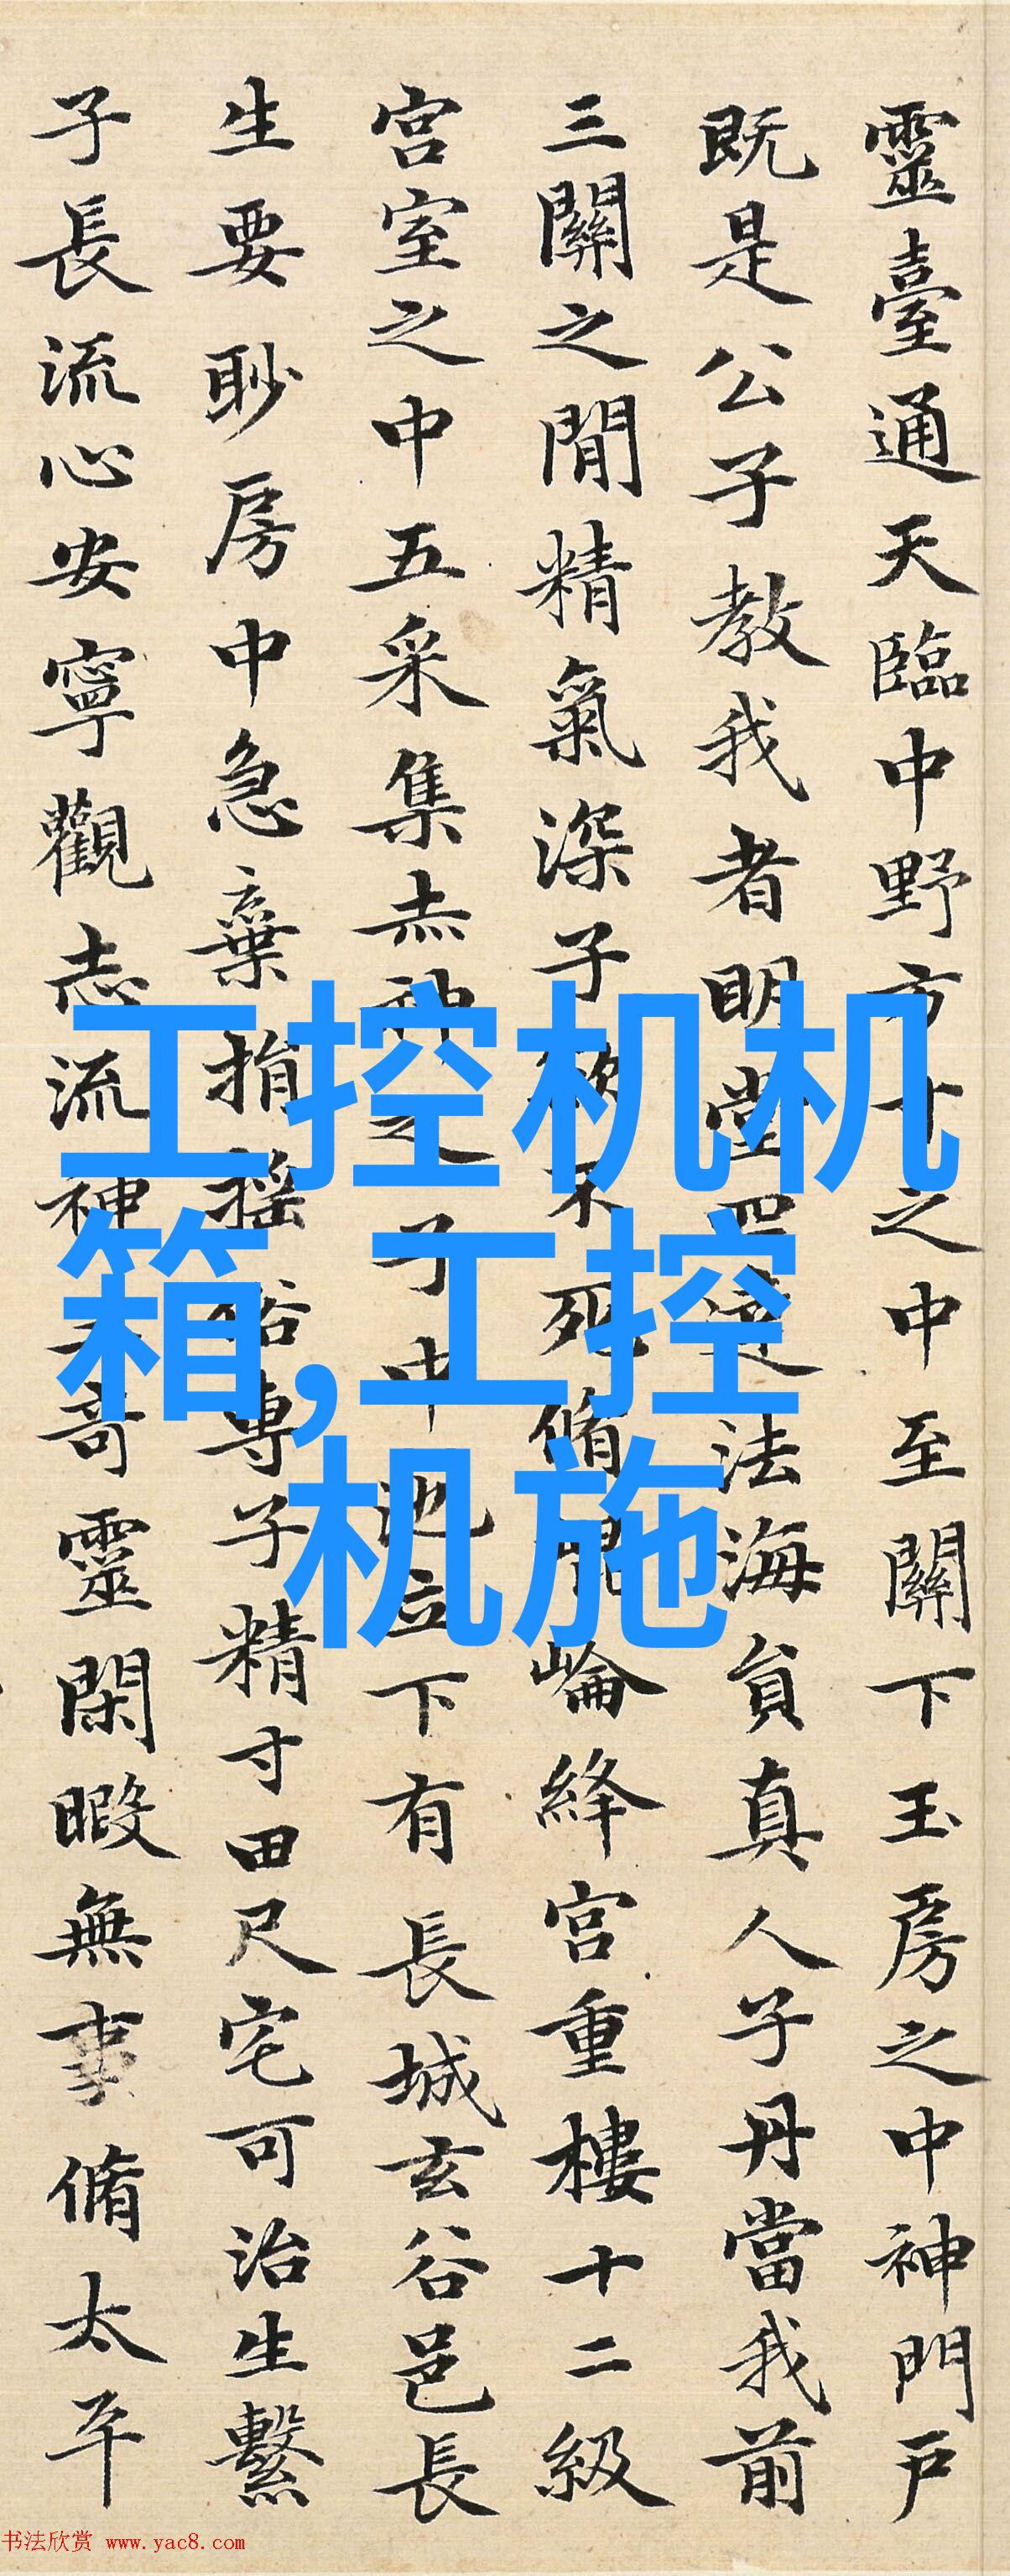 靈臺通天臨中野方寸之中至關下玉房之中神門戶
既是公子教我者明堂四達法海員真人子丹當我前
三關之間精氣深子欲不死脩崐崘絳宮重樓十二級
宮室之中五采集赤神之子中池立下有長城玄谷邑長
生要眇房中急棄捐搖俗專子精寸田尺宅可治生繫
子長流心安寧觀志流神三奇靈閑暇無事脩太平
工控机机
箱,工控
机施
书法欣赏 www.yac8.com